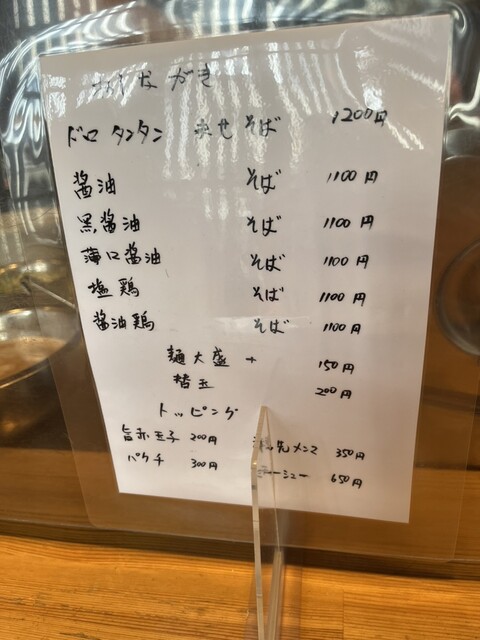 おしながき
ドロ タンタン 混ぜそば 1200円
醤油 そば 1100円
黒醤油 そば 1100円
薄口醤油 そば 1100円
塩鶏 そば 1100円
醤油鶏 そば 1100円
麺大盛 + 150円
替玉 200円
トッピング
旨赤玉子 200円 穂先メンマ 350円
パクチ 300円 チャーシュー 650円